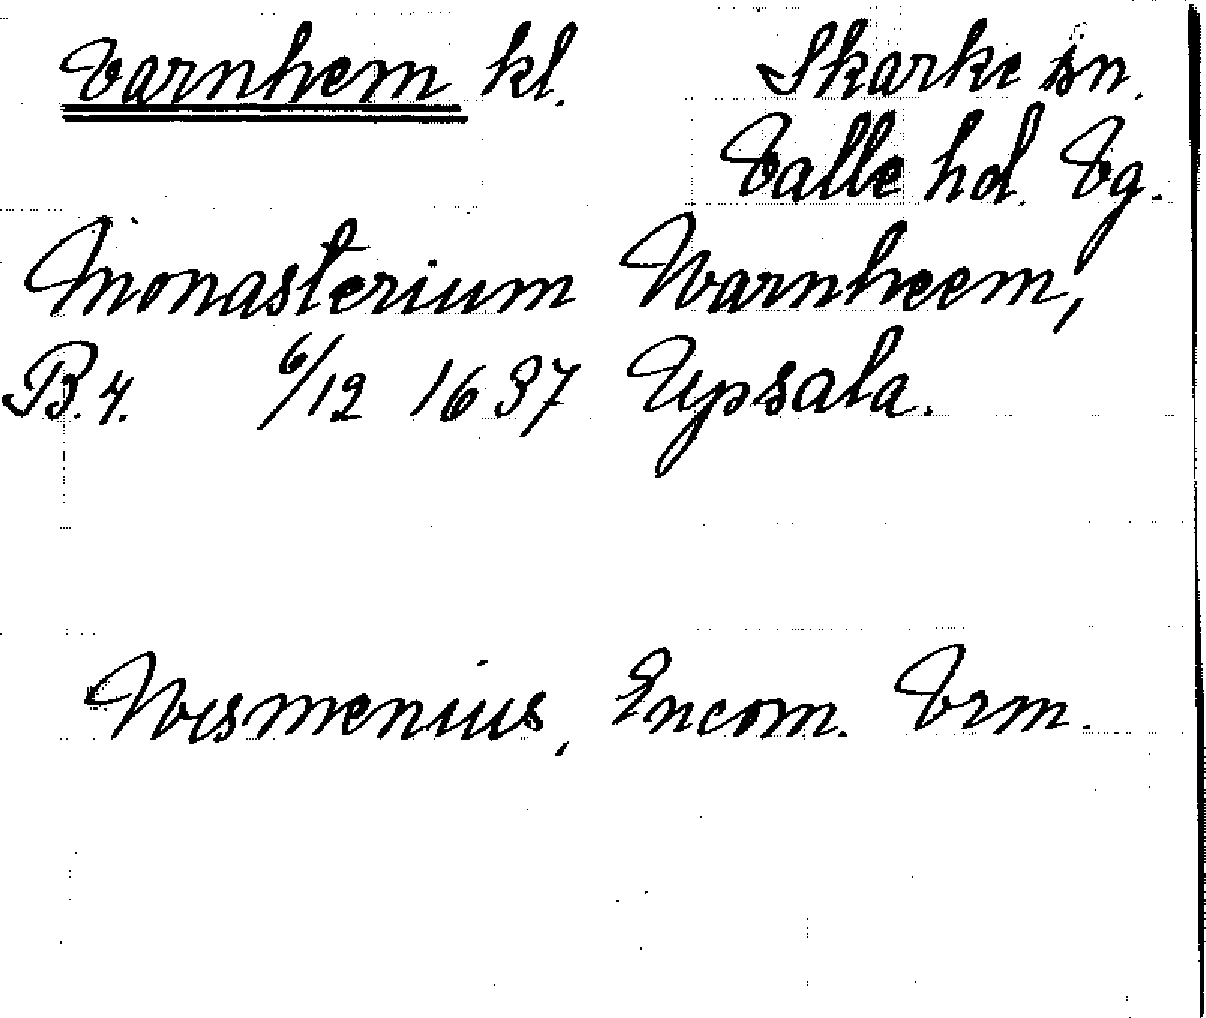 Varnhem kl. Skarke sn.
Valle hd. Vg.
Monasterium Warnheem,
B. 4. 6/12 1637 Upsala.
Wismenius, Encom. Vrm.